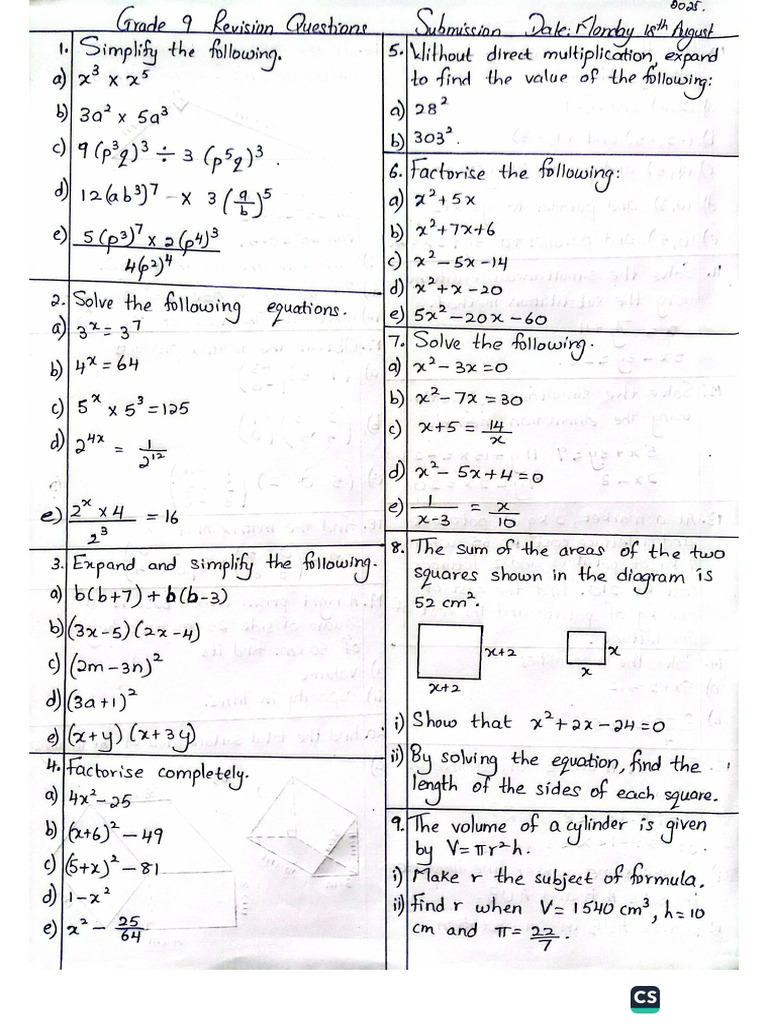 Grade 9 Revision Questions Submission Date: Monday 18th August 2025.
1. Simplify the following.
a) x³ × x⁵
b) 3a² × 5a³
c) 9(p³q)³ ÷ 3(p⁵q)³.
d) 12(ab³)⁷ × 3(a/b)⁵
e) 5(p³)⁷ × 2(p⁴)³
4(p²)⁴
2. Solve the following equations.
a) 3ˣ = 3⁷
b) 4ˣ = 64
c) 5ˣ × 5³ = 125
d) 2⁴ˣ = 1/2¹²
e) 2ˣ × 4 = 16
2³
3. Expand and simplify the following.
a) b(b+7) + b(b-3)
b) (3x-5)(2x-4)
c) (2m-3n)²
d) (3a+1)²
e) (x+y)(x+3y)
4. Factorise completely.
a) 4x²-25
b) (x+6)² - 49
c) (5+x)² - 81
d) 1-x²
e) x² - 25/64
5. Without direct multiplication, expand
to find the value of the following:
a) 28²
b) 303².
6. Factorise the following:
a) x²+5x
b) x²+7x+6
c) x²-5x-14
d) x²+x-20
e) 5x²-20x-60
7. Solve the following.
a) x²-3x=0
b) x²-7x=30
c) x+5 = 14/x
d) x²-5x+4=0
e) 1/x-3 = x/10
8. The sum of the areas of the two
squares shown in the diagram is
52 cm².
x+2 x
x+2 x
i) Show that x²+2x-24=0
ii) By solving the equation, find the
length of the sides of each square.
9. The volume of a cylinder is given
by V=πr²h.
i) Make r the subject of formula.
ii) Find r when V=1540 cm³, h=10
cm and π=22/7.
CS